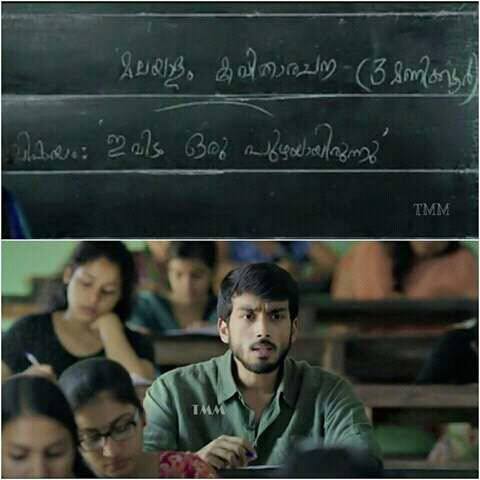 മലയാളം കവിതാരചന - (3 മണിക്കൂർ)
വിഷയം: 'ഇവിടം ഒരു പുഴയായിരുന്നു'
TMM
TMM